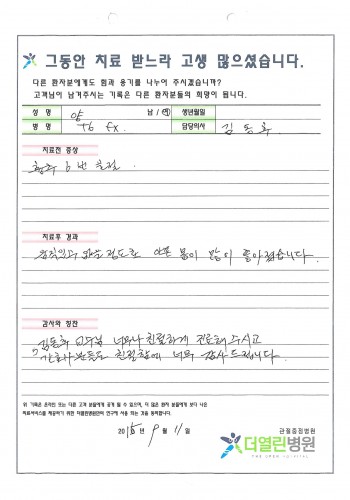 그동안 치료 받느라 고생 많으셨습니다.
다른 환자분에게도 힘과 용기를 나누어 주시겠습니까?
고객님이 남겨주시는 기록은 다른 환자분들의 희망이 됩니다.
성 명 양 남 / 여 생년월일
병 명 T6 fx. 담당의사 김동후
치료전 증상
흉추 6번 골절
치료후 경과
움직이고 정도로 아픈 몸이 많이 좋아졌습니다.
감사와 칭찬
김동후 교수님 너무나 친절하게 진료해 주시고
간호사 분들도 친절함에 너무 감사드립니다.
위 기록은 온라인 또는 다른 고객 분들에게 공개 될 수 있으며, 더 많은 환자 분들에게 보다 나은
의료서비스를 제공하기 위한 더열린병원만의 연구에 사용 되는 것을 동의합니다.
2015년 9월 11일
관절중점병원
더열린병원
THE OPEN HOSPITAL